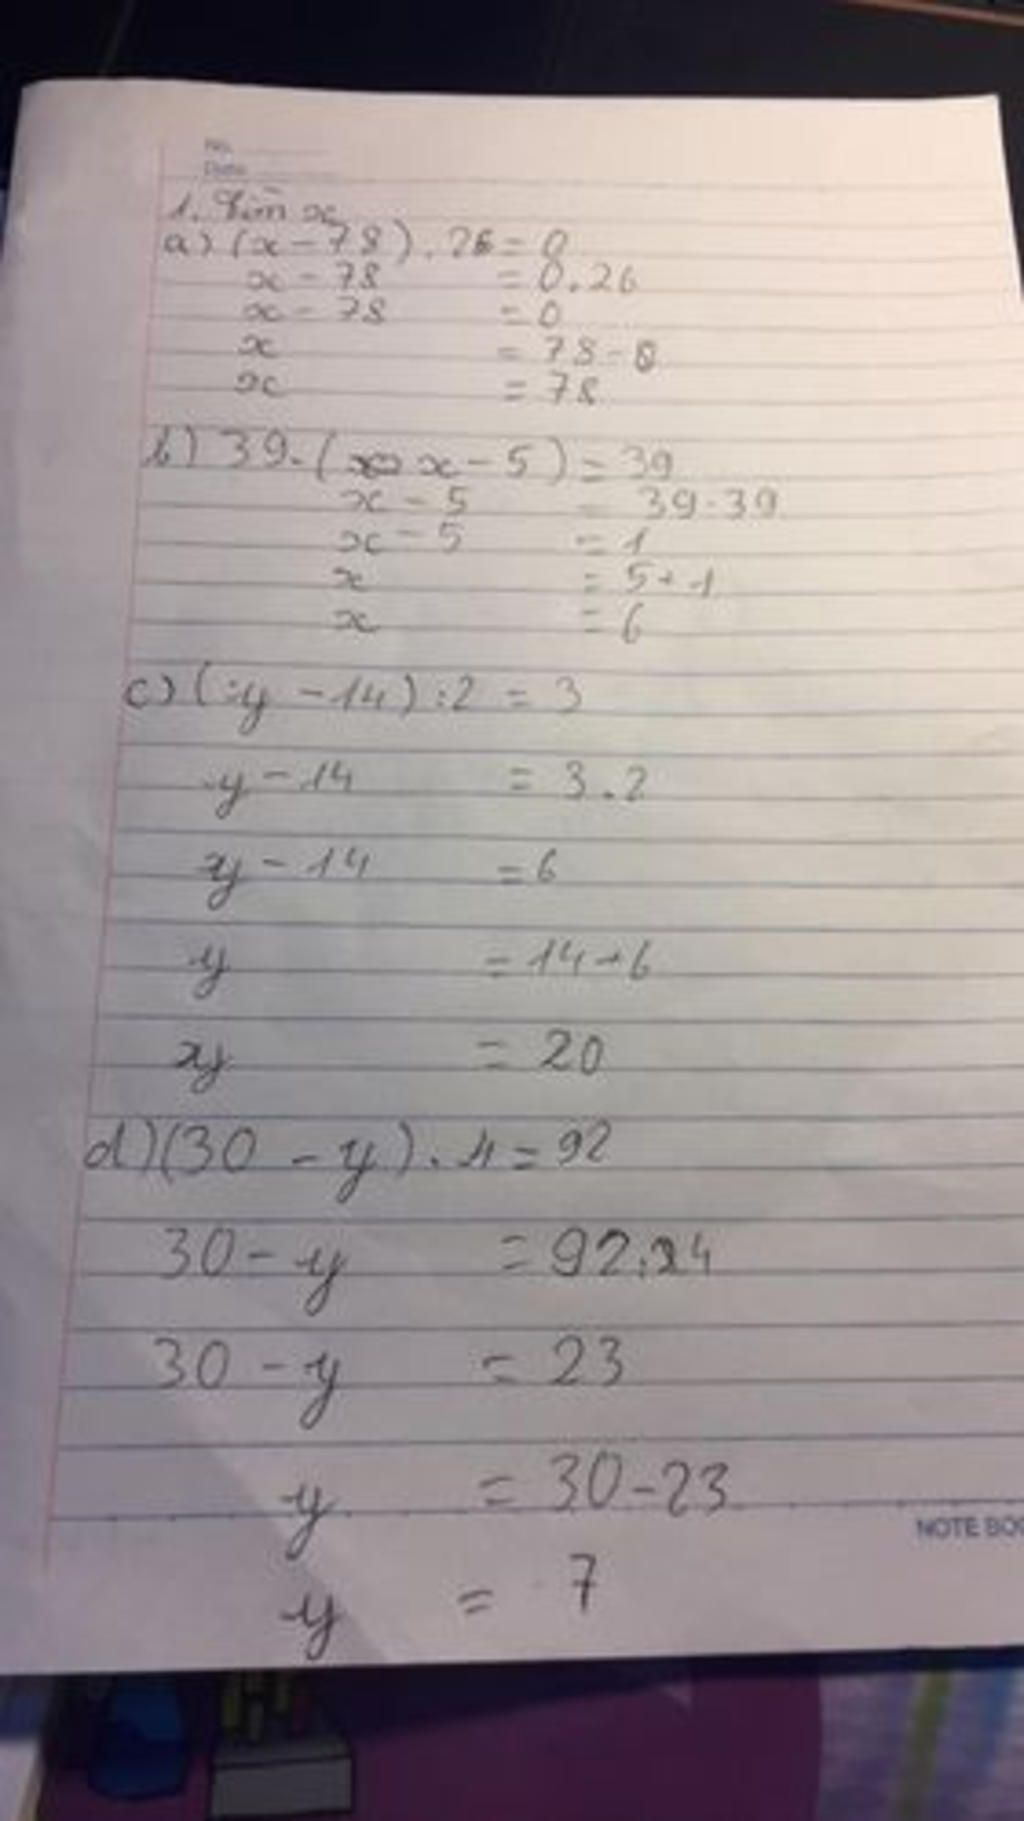 No.
Date
1. Tìm x
a) (x - 78) . 26 = 0
x - 78 = 0.26
x - 78 = 0
x = 78 - 0
x = 78
b) 39. ( x - 5) = 39
x - 5 = 39.39
x - 5 = 1
x = 5 + 1
x = 6
c) (y - 14) : 2 = 3
y - 14 = 3.2
y - 14 = 6
y = 14 + 6
y = 20
d) (30 - y) . 4 = 92
30 - y = 92:4
30 - y = 23
y = 30 - 23
y = 7
NOTE BOO